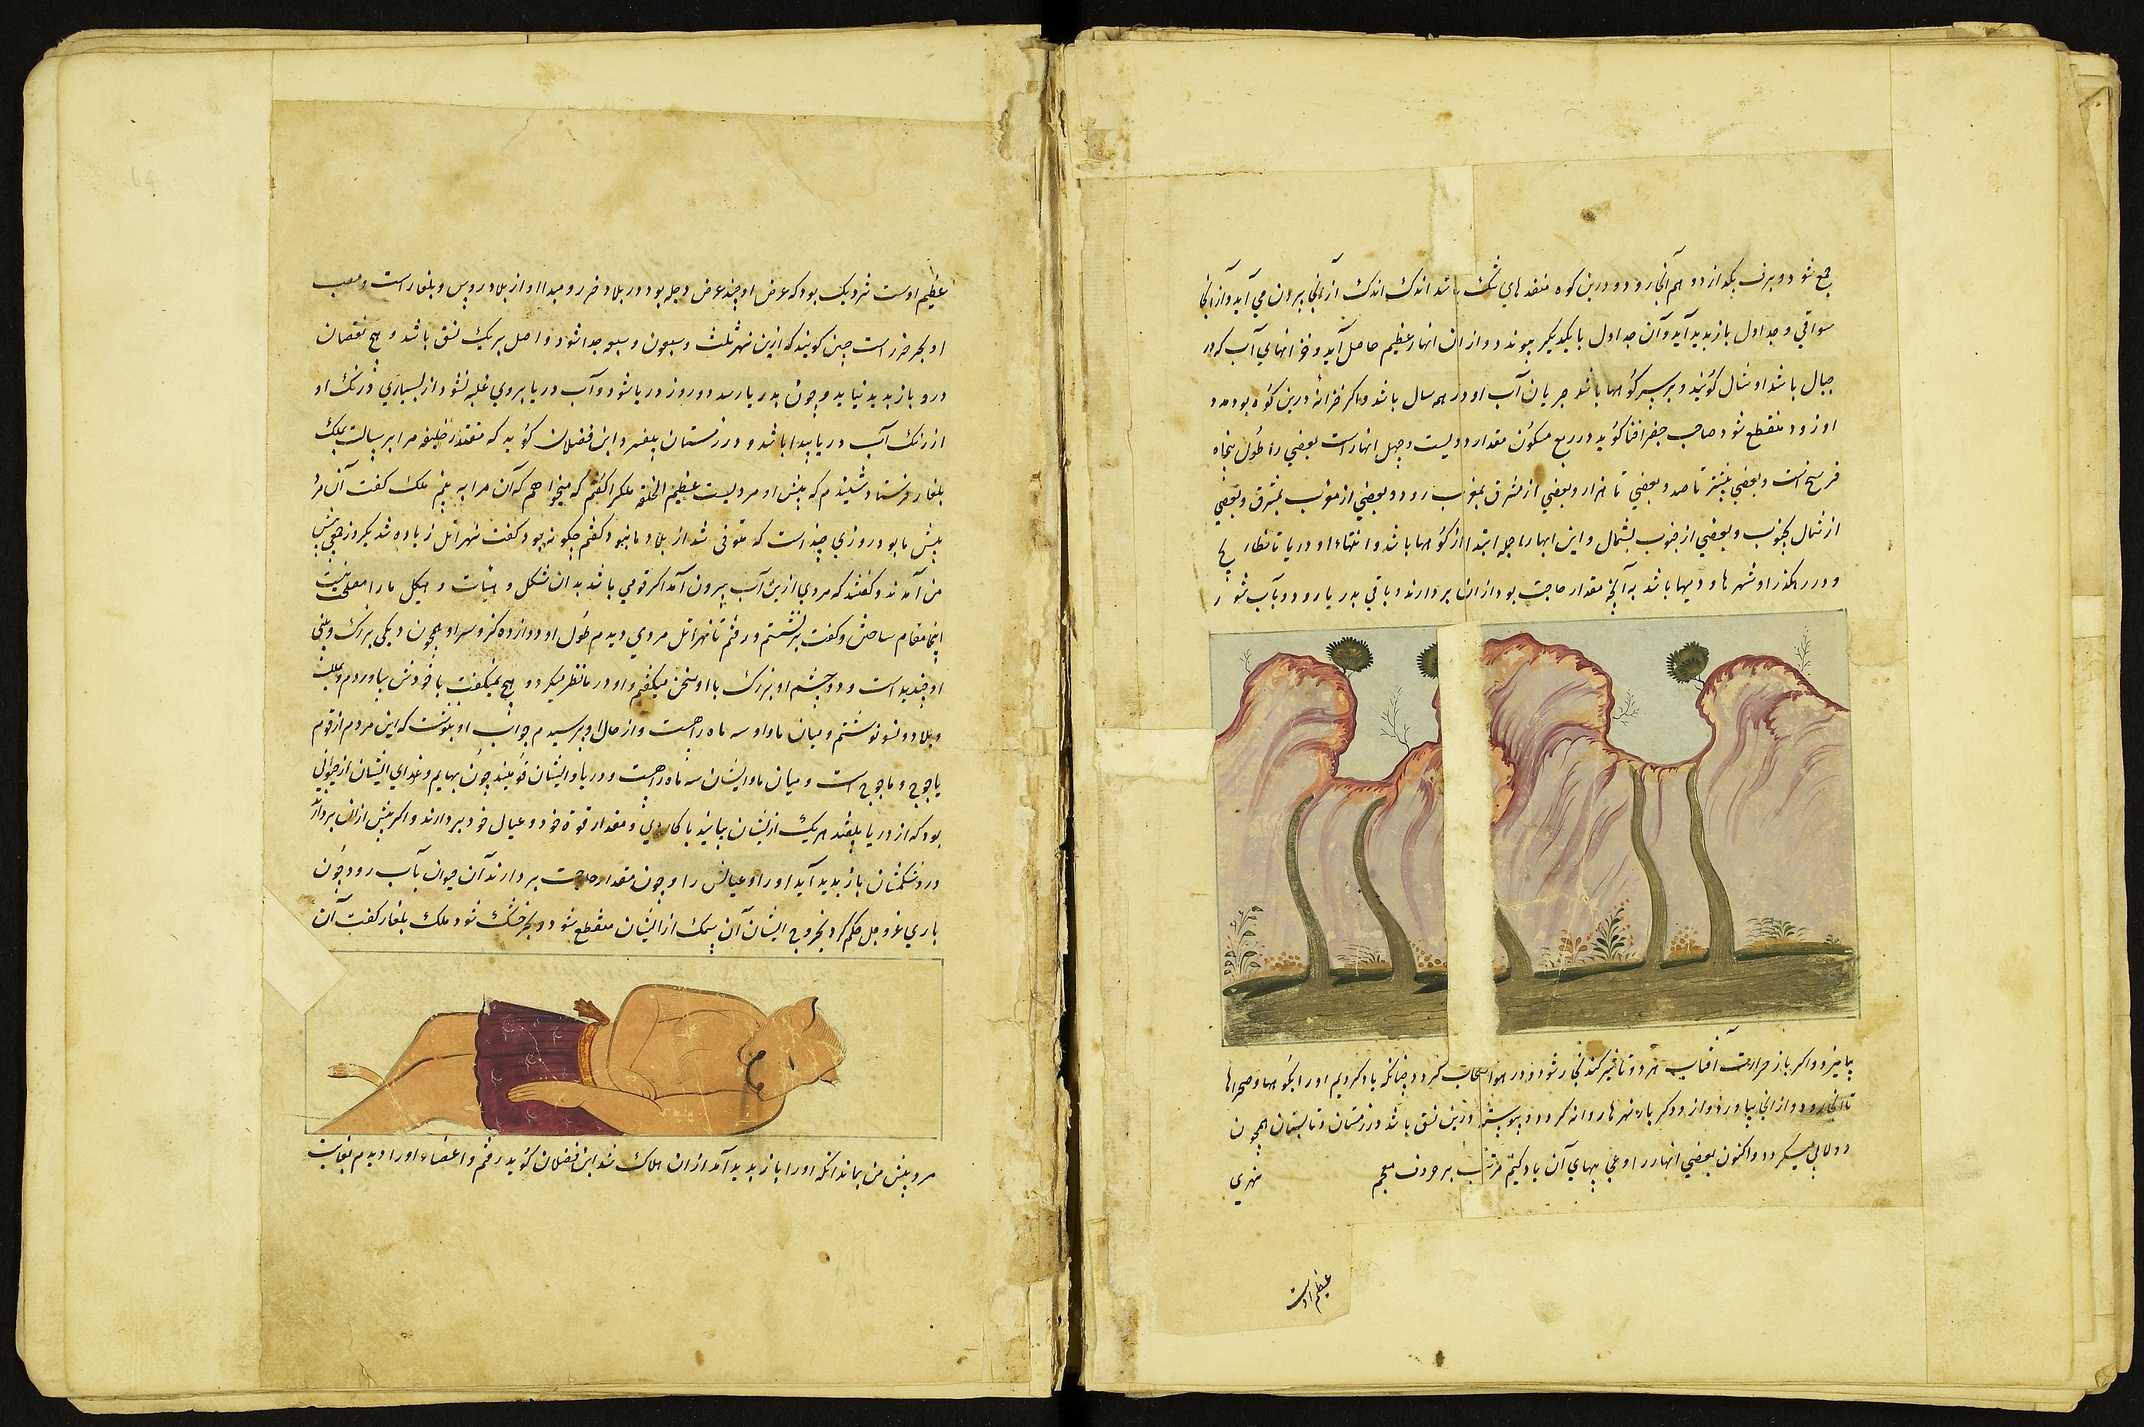 جمع شود و برف بگدازد و هم آنجا رود و درین کوه منفذهای تنگ باشد اندک اندک از آنجا بیرون می آید و از آنجا
سواقی و جداول بازبدید آید و آن جداول با یکدیگر پیوندد و ازان انهار عظیم حاصل آید و خزانهای آب که در
جبال باشد اوشال گویند و بر سر کوهها باشد جریان آب او در همه سال باشد و اگر خزانه درین کوه بود مدد
او زود منقطع شود صاحب جغرافیا گوید در ربع مسکون مقدار دویست و چهل انهارست بعضی را طول پنجاه
فرسخ است و بعضی بیشتر تا صد و بعضی تا هزار و بعضی از مشرق بمغرب رود و بعضی از مغرب بمشرق و بعضی
از شمال بجنوب و بعضی از جنوب بشمال و این انهار را جمله ابتدا از کوهها باشد و انتهاء او دریا تا بطایح
و در رهگذر او شهرها و دیهها باشد به آنچه مقدار حاجت بود ازان بردارند و باقی بدریا رود و بآب شور
بیامیزد و اگر باز حرارت آفتاب درو تاثیر کند بخار شود و در هوا سحاب گردد چنانکه یاد کردیم او را بکوهها و صحراها
تا آنجا رود و از آنجا بیاورد و از و دگر باره نهرها روانه گردد و پیوسته درین نسق باشد در زمستان و تابستان همچون
دولابی میگردد و اکنون بعضی انهار را و عجایبهای آن یاد کنیم مرتب بر حروف معجم نهری
عظیم اوست
عظیم اوست نزدیک بود که عرض او چند عرض دجله بود در بلاد خزر و مبداء او از بلاد روس و بلغار است و مصب
او بحر خزر است چنین گویند که ازین نهر ثلث و سبعون و سبعه جدا شود و اصل بر یک نسق باشد و هیچ نقصان
درو بازبدید نیاید و چون بدریا رسد دو روز در یا شود و آب دریا بروی غلبه نشود از بسیاری و رنگ او
از رنگ آب دریا پیدا باشد و در زمستان بیفسرد ابن فضلان گوید که مقتدر خلیفه مرا برسالت بملک
بلغار فرستاد شنیدم که پیش او مردیست عظیم الخلقه ملک را گفتم که میخواهم که آن مرا به بینم ملک گفت آن مرد
پیش ما بود روزی چند است که متوفی شد از بلاد ما نبود گفتم چگونه بود گفت نهر اتل زیاده شد یکروز جمعی پیش
من آمدند و گفتند که مردی ازین آب بیرون آمد اگر قومی باشد بدان شکل و هیئات و هیکل ما را مصلحت نیست
اینجا مقام ساختن و گفت برنشستم و رفتم تا نهر اتل مردی دیدم طول او دوازده گز و سر او همچون دیگی بزرگ و بینی
او چند بدست و دو چشم او بزرگ با او سخن میگفتم و او در ما نظر میکرد و هیچ نمیگفت با خودش بیاوردم و بملک
و بلاد ونسو نوشتم و میان ما و او سه ماه راهست و از حال او پرسیدم جواب او بنوشت که این مردم از قوم
یاجوج و ماجوج است و میان ما و ایشان سه ماه راهست و دریا و ایشان قومیند چون بهایم و غذای ایشان از حیوانی
بود که از دریا بیفتد هریک ازیشان بیایند با کاردی و مقدار قوة خود و عیال خود بردارند و اگر بیش ازان بردارند
درد شکمشان بازبدید آید او را و عیالش را و چون مقدار حاجت بردارند آن حیوان بآب رود چون
باری عز و جل حکم کرد بخروج ایشان آن سمک از ایشان منقطع شود و بحر خشک شود ملک بلغار گفت آن
مرد پیش من بماند آنگه او را بازبدید آمد ازان هلاک شد ابن فضلان گوید رفتم و اعضاء او را دیدم بغایت